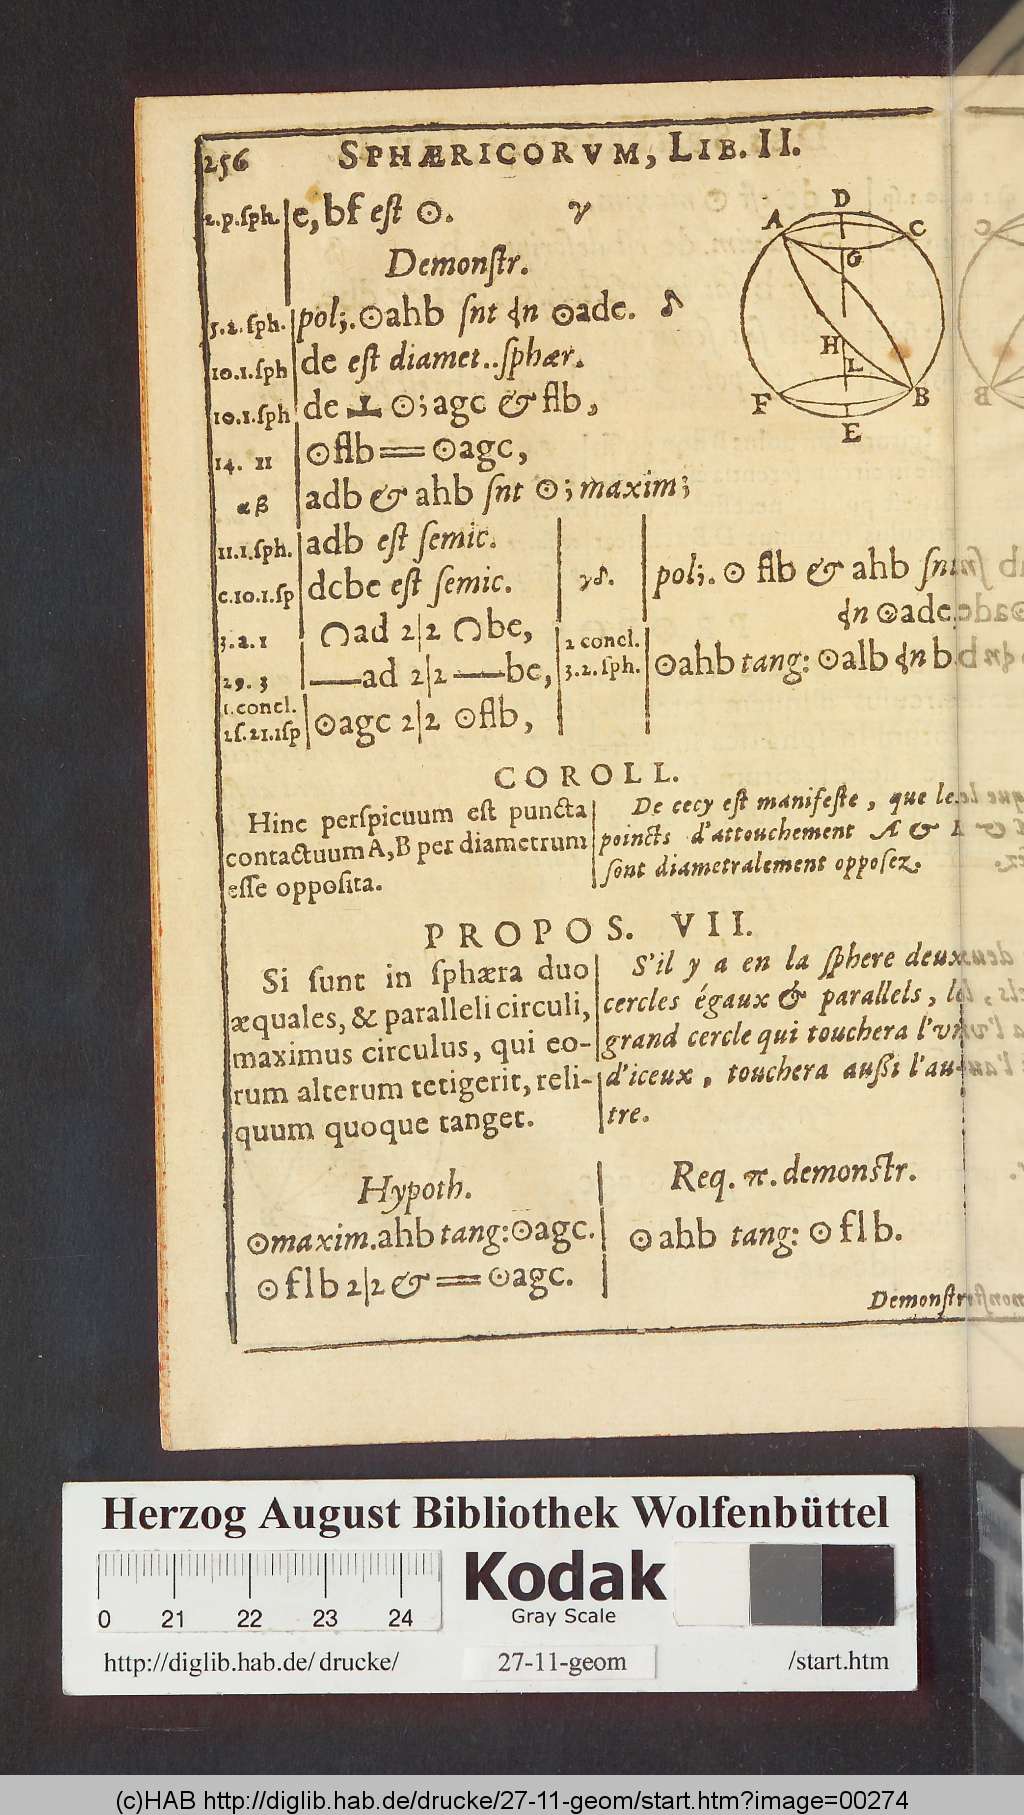 256 SPHÆRICORVM, LIB. II.
2.p.sph. e, bf est ⊙. γ
Demonstr.
5.2.sph. pol;. ⊙ahb snt ⫛n ⊙ade. δ
10.1.sph de est diamet..sphær.
10.1.sph de ⊥ ⊙; agc & flb,
14. 11 ⊙flb == ⊙agc,
αβ adb & ahb snt ⊙; maxim;
11.1.sph. adb est semic.
c.10.1.sp dcbe est semic.
3.2.1 ∩ad 2|2 ∩be,
29.3 —ad 2|2 —be,
1.concl.
2f.21.1sp ⊙agc 2|2 ⊙flb,
γδ. pol;. ⊙ flb & ahb snt
⊙ade.
2 concl.
3.2.sph. ⊙ahb tang: ⊙alb b
A D C G H L F B E
COROLL.
Hinc perspicuum est puncta
contactuum A, B per diametrum
esse opposita.
De cecy est manifeste, que les
poincts d'attouchement A &
sont diametralement opposez.
PROPOS. VII.
Si sunt in sphæra duo
æquales, & paralleli circuli,
maximus circulus, qui eo-
rum alterum tetigerit, reli-
quum quoque tanget.
S'il y a en la sphere deux
cercles égaux & parallels, le
grand cercle qui touchera l'vn
d'iceux, touchera aussi l'au-
tre.
Hypoth.
⊙maxim.ahb tang:⊙agc.
⊙ flb 2|2 & == ⊙agc.
Req. π. demonstr.
⊙ ahb tang: ⊙ flb.
Demonstr.
Herzog August Bibliothek Wolfenbüttel
0 21 22 23 24
Kodak
Gray Scale
http://diglib.hab.de/drucke/ 27-11-geom /start.htm
(c)HAB http://diglib.hab.de/drucke/27-11-geom/start.htm?image=00274